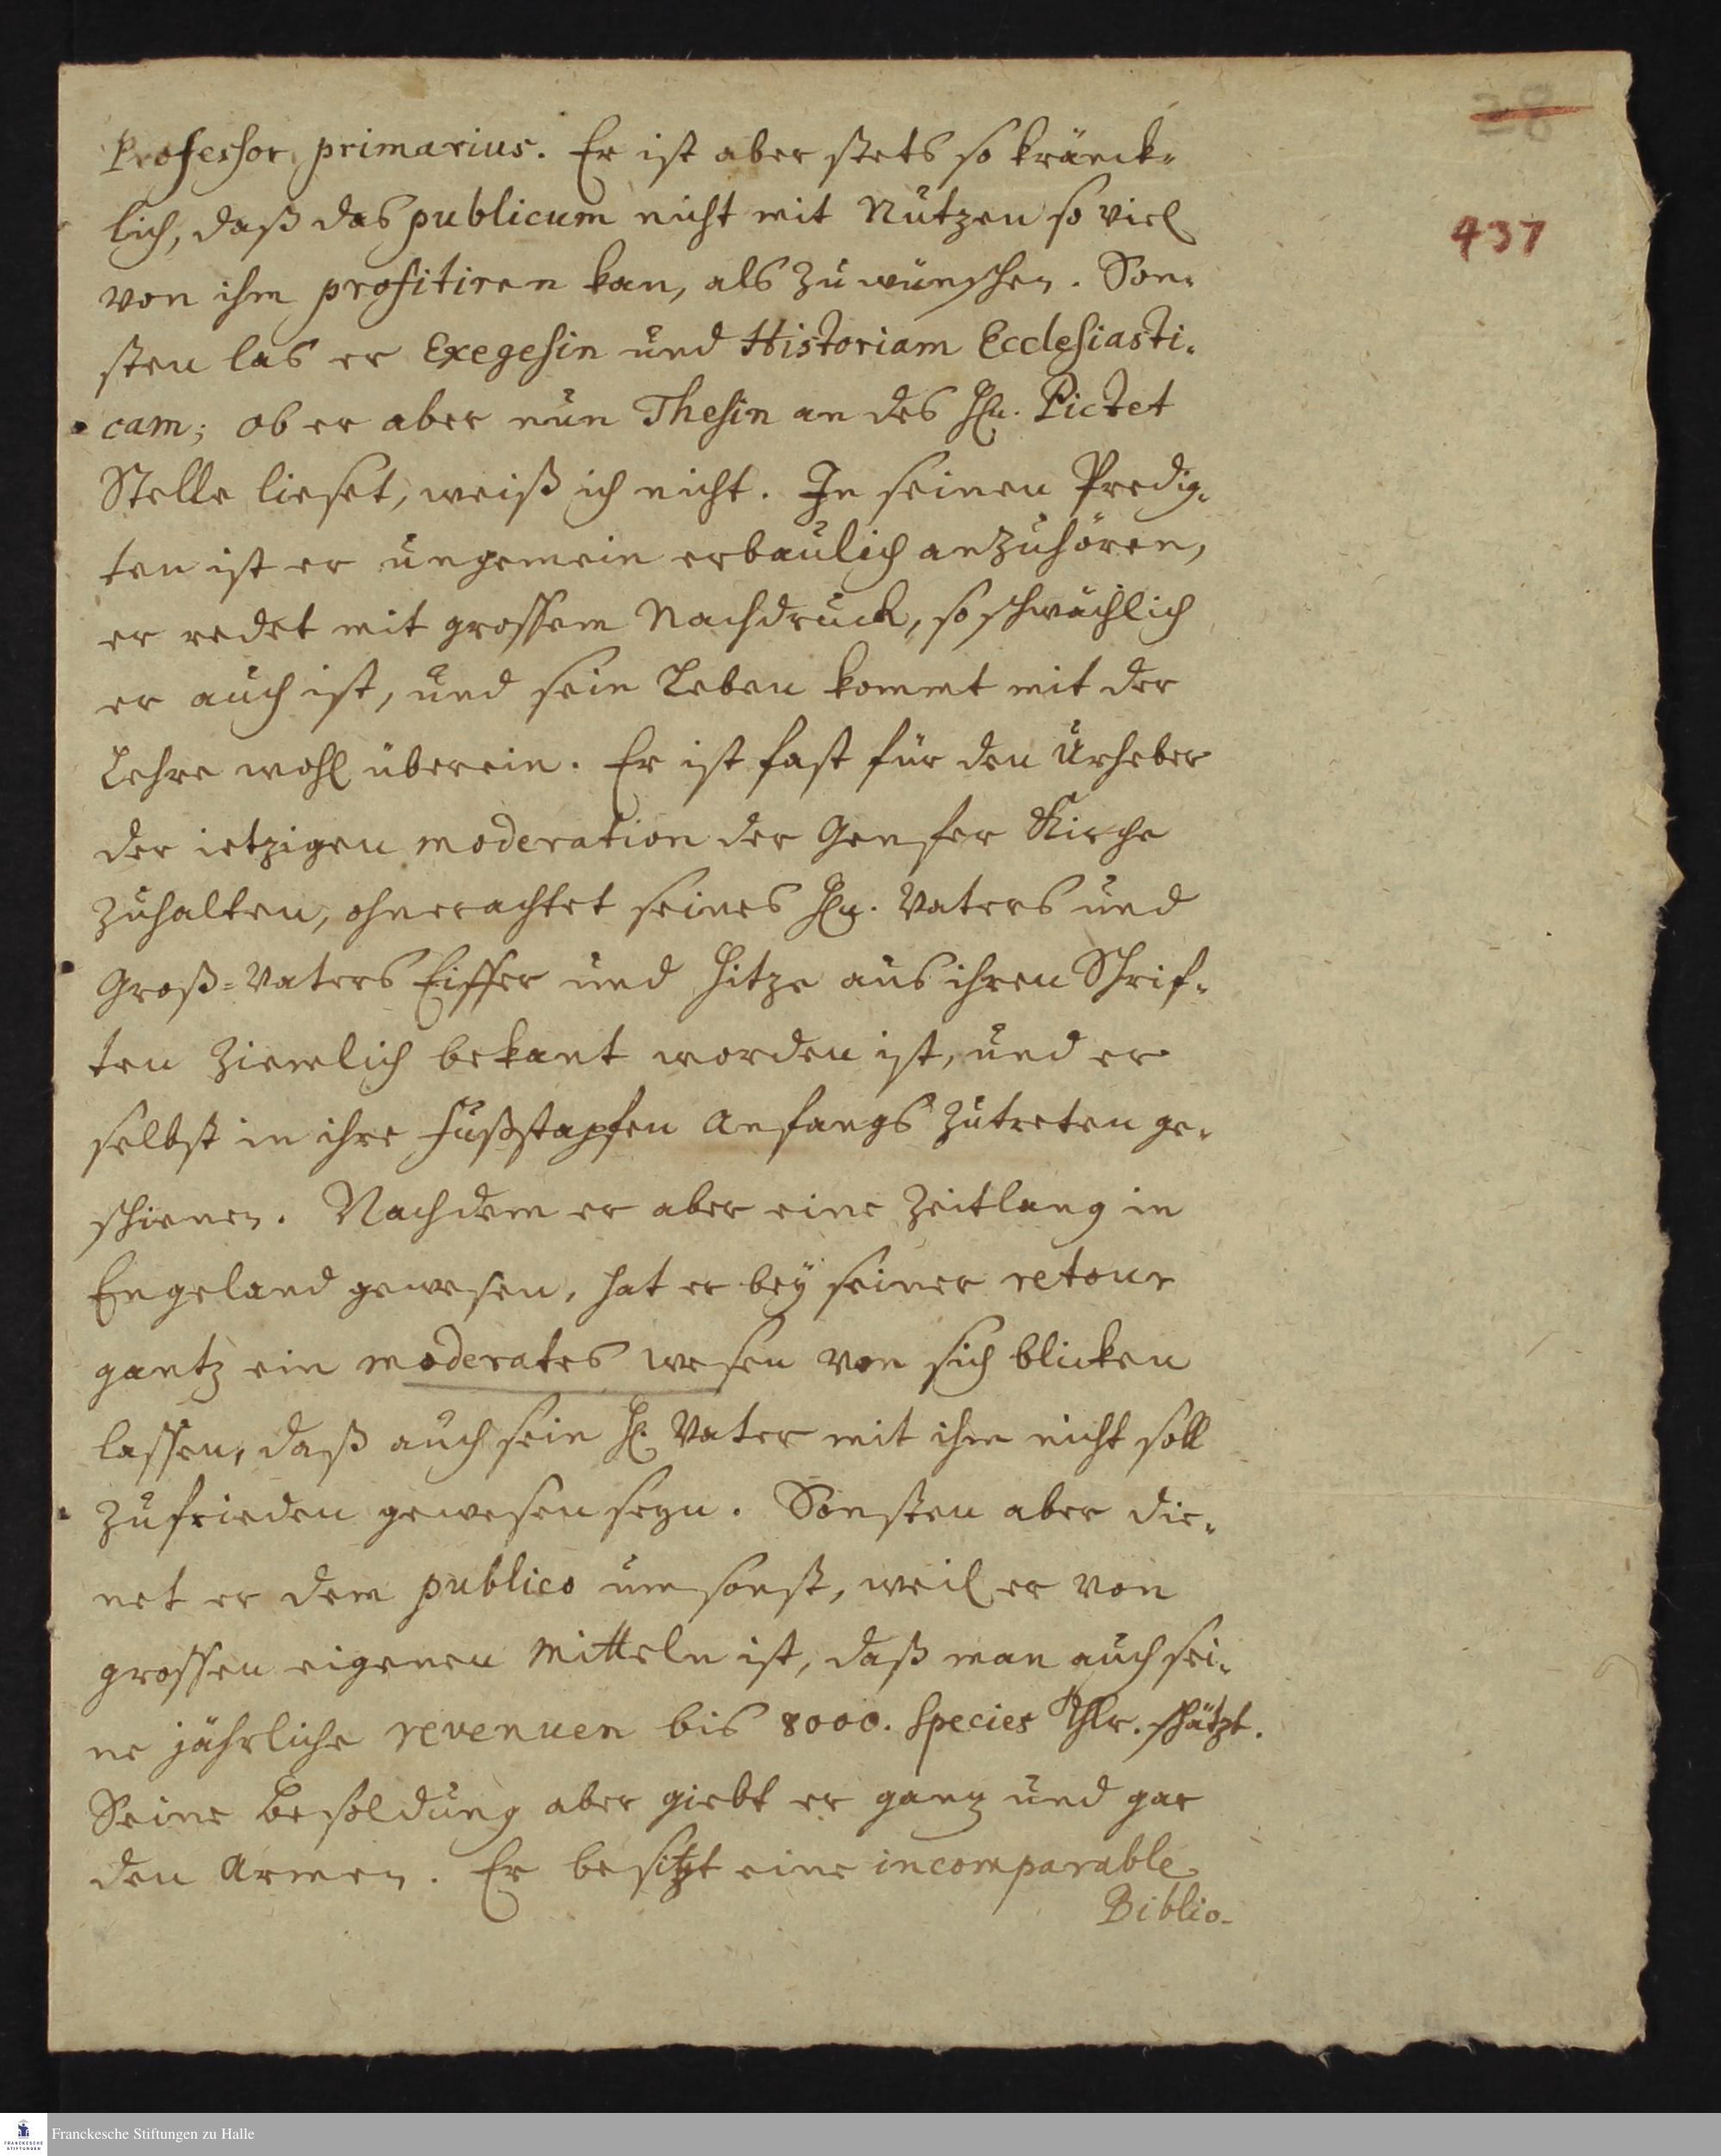 28
437
Professor primarius. Er ist aber stets so kränck-
lich, daß das publicum nicht mit Nutzen so viel
von ihm profitiren kan, als zu wünschen. Son-
sten las er Exegesin und Historiam Ecclesiasti-
cam; ob er aber nun Thesin an des Hn. Pictet
Stelle lieset, weiß ich nicht. In seinen Predig-
ten ist er ungemein erbaulich anzuhören,
er redet mit grossem Nachdruck, so schwächlich
er auch ist, und sein Leben kommt mit der
Lehre wohl überein. Er ist fast für den Urheber
der ietzigen moderation der Genfer Kirche
zuhalten, ohnerachtet seines Hn. Vaters und
Groß-Vaters Eiffer und Hitze aus ihren Schrif-
ten ziemlich bekant worden ist, und er
selbst in ihre Fußstapfen Anfangs zutreten ge-
schienen. Nachdem er aber eine Zeitlang in
Engeland gewesen, hat er bey seiner retour
gantz ein moderates wesen von sich blicken
lassen, daß auch sein H. Vater mit ihm nicht soll
zufrieden gewesen seyn. Sonsten aber die-
net er dem publico umsonst, weil er von
grossen eigenen Mitteln ist, daß man auch sei-
ne jährliche revenuen bis 8000. Species Thlr. schätzt.
Seine Besoldung aber giebt er ganz und gar
den Armen. Er besitzt eine incomparable
Biblio-
Franckesche Stiftungen zu Halle